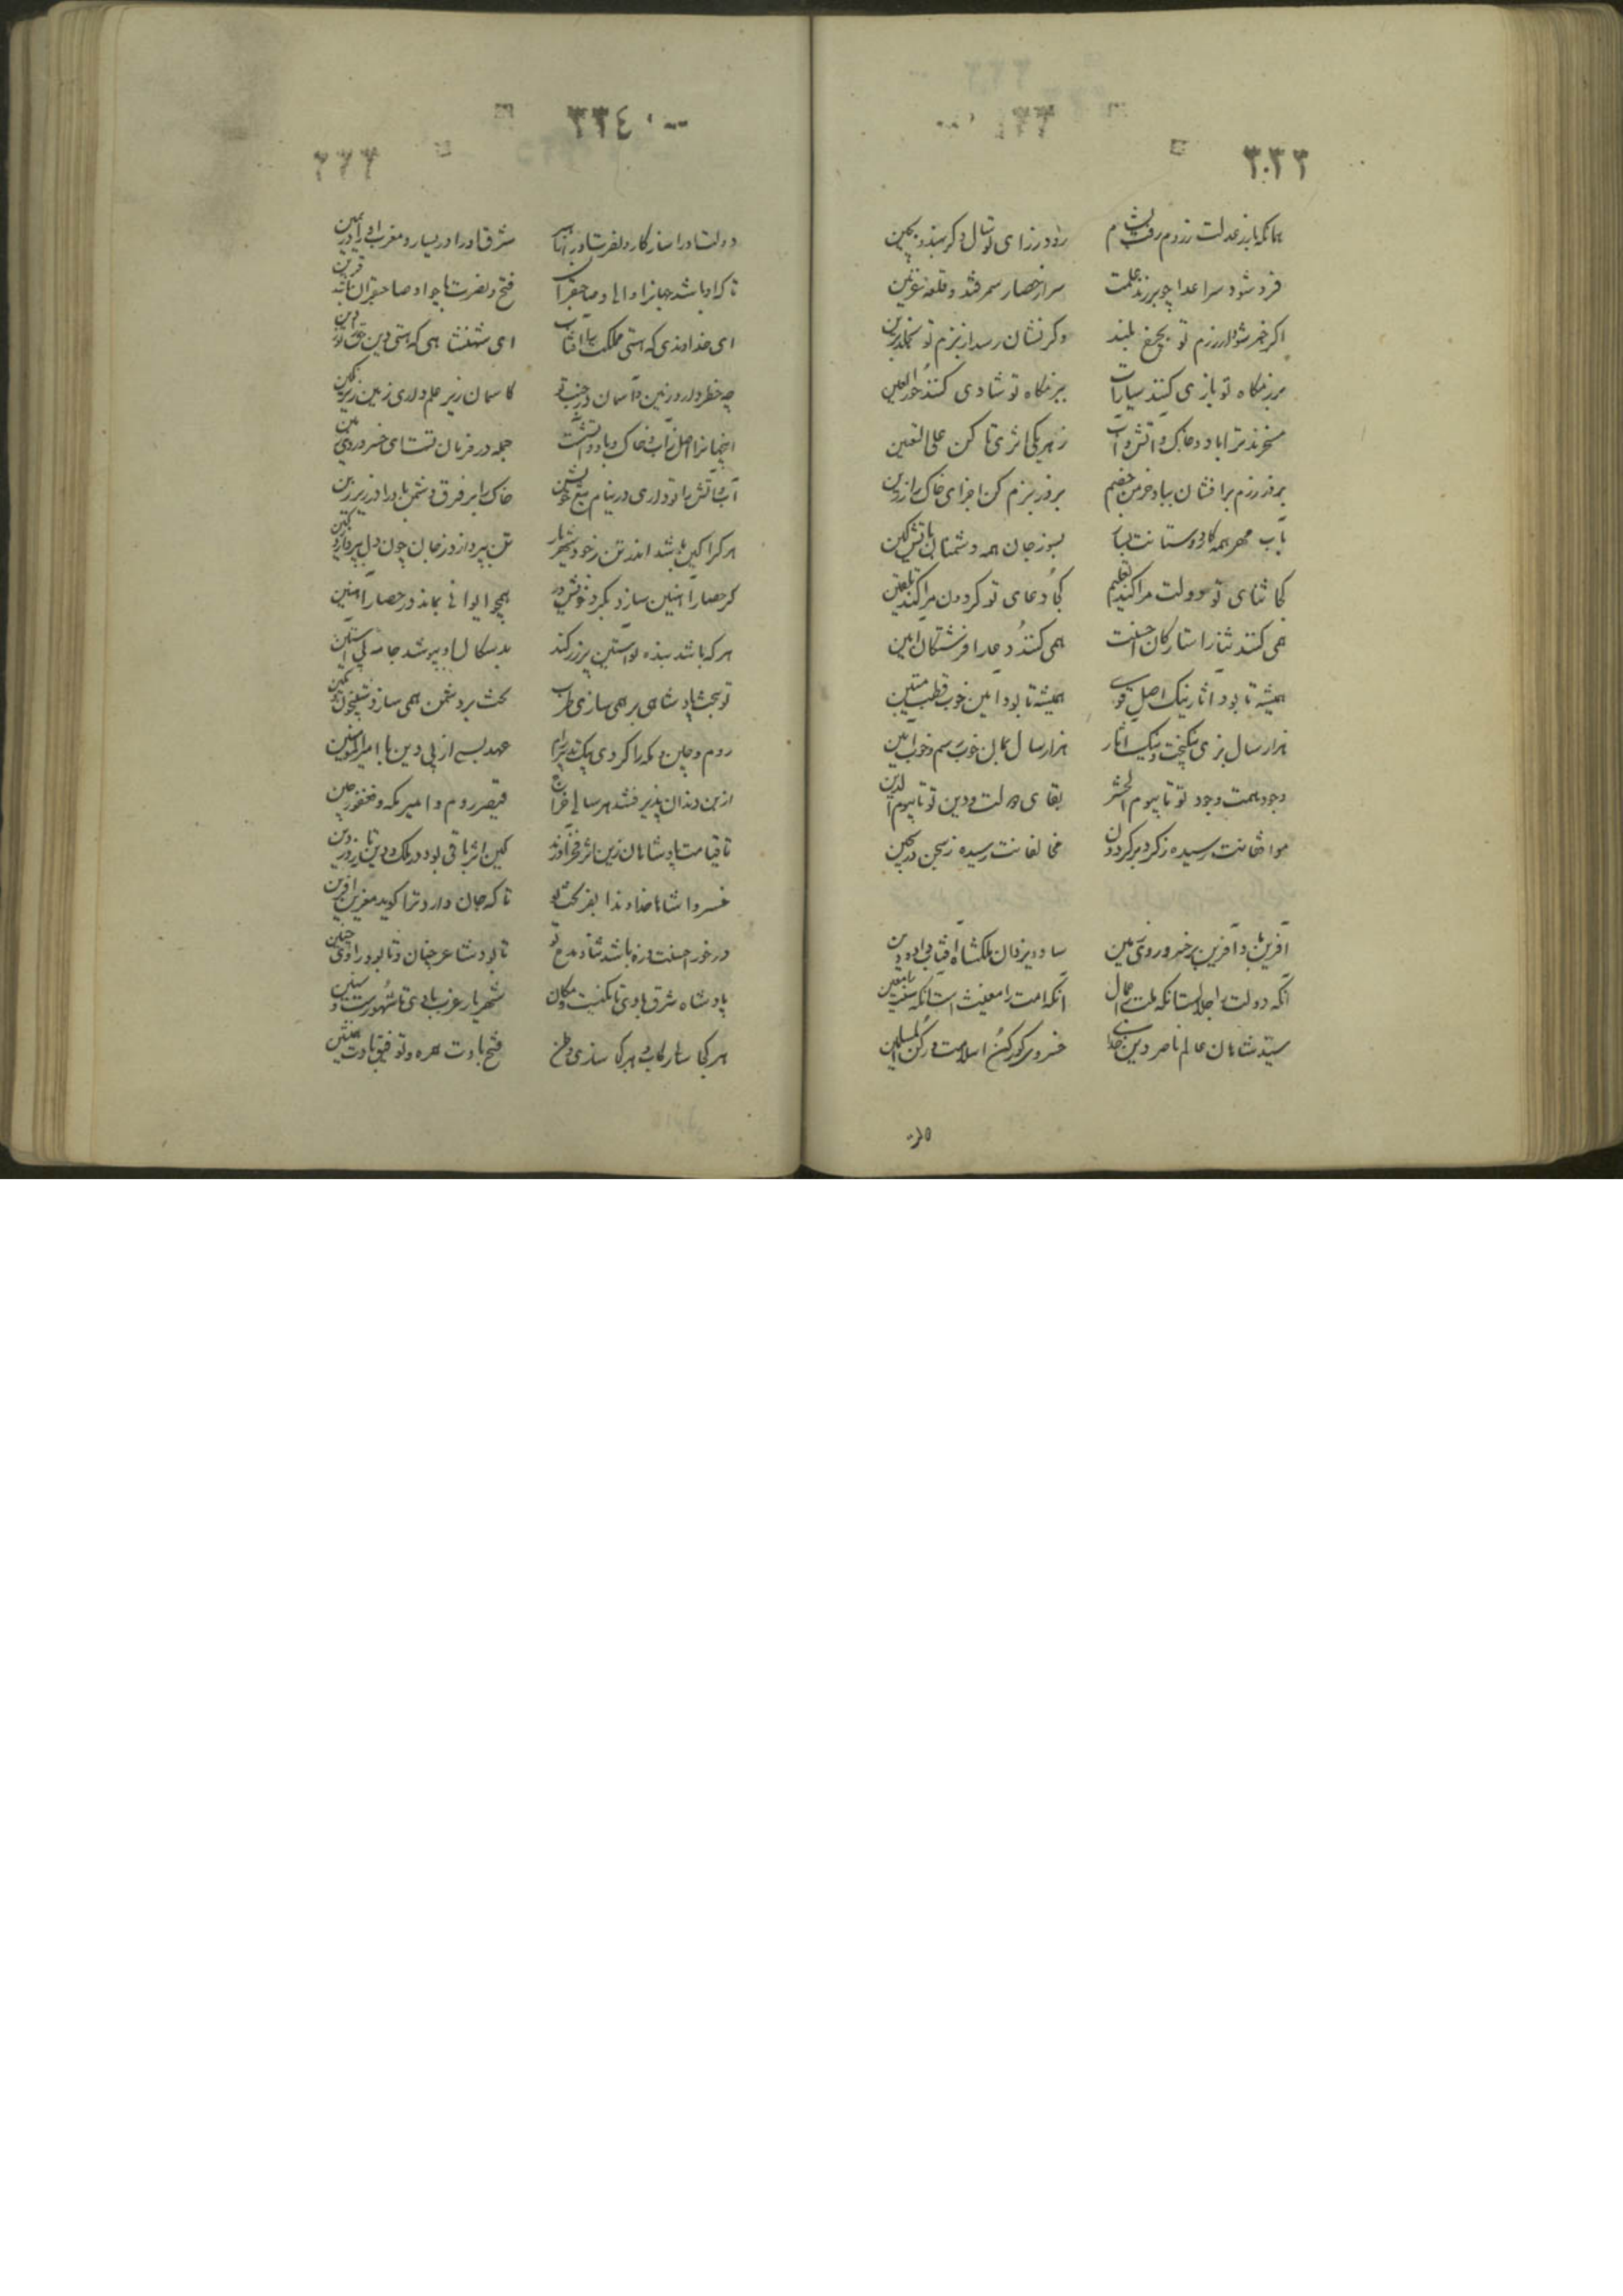 ٣٣٣
همانکه بارز عدلت رزوم رفت بشام
رود زرای تو سال دکر بهند و بچین
فرو شود سر اعدا چو برزند علمت
سر از حصار سمرقند و قلعه غزنین
اکر خبر شود از رزم تو بچرخ بلند
وکر نشان رسد از بزم تو بخلد برین
برزمکاه تو بازی کنند سیارات
ببزمکاه تو شادی کنند حورالعین
مسخرند ترا باد و خاک و اتش و آب
زهر یکی اثری تا کن علی التعیین
بروز رزم برافشان بباد خرمن خصم
بروز بزم کن اجزای خاک را زرین
بآب مهر همه کار دوستانت بساز
بسوز جان همه دشمنان باتش کین
کجا ثنای تو دولت مرا کند تعلیم
کجا دعای تو کردون مرا کند تلقین
همی کنند ثنا را ستارکان احسنت
همی کنند دعا را فرشتکان امین
همیشه تا بود اثار نیک اصل قوی
همیشه تا بود ایین خوب قطب متین
هزار سال بزی نیکبخت و نیک اثار
هزار سال بمان خوب رسم و خوب ایین
وجود همت وجود تو تا بیوم الحشر
بقای دولت و دین تو تا بیوم الدین
موافقانت رسیده ز کرد بر کردون
مخالفانت رسیده ز سجن در سجین
آفرین باد آفرین بر خسرو روی زمین
سایه یزدان ملکشاه آفتاب داد و دین
آنکه دولت را جلالست انکه ملت را جمال
انکه امت را مغیث است انکه سنت را معین
سید شاهان عالم ناصر دین خدا
خسروی کو رکن اسلامست و رکن المسلمین
٣٣٤
دولت او را سازکار و نصرت او را
شرق او را در یسار و مغرب او را در یمین
تا که او باشد جهانرا والی و صاحبقران
فتح و نصرت با چو او صاحبقران باشد قرین
ای خداوندی که هستی مملکت را افتاب
ای شهنشاهی که هستی دین حق را
چه خطر دارد زمین و آسمان در جنب تو
کاسمان زیر علم داری زمین زیر نکین
اینجهانرا اصل از آب و خاک و باد و اتشست
جمله در فرمان تست ای خسرو روی زمین
آب و آتش را تو داری در نیام تیغ خویش
خاک را بر فرق دشمن باد را در زیر زین
هر کرا کین باشد اندر تن ز خود شهریار
تن بپردازد ز جان چون دل بپردازد ز کین
کر حصار آهنین سازد بکرد خویش در
همچو ایوانی بماند در حصار آهنین
هر که باشد بنده تو استین پر زر کند
بدسکال او بپوشد جامه بی آستین
تو بتخت پادشاهی بر همی سازی طرب
بخت بر دشمن همی سازد شبیخون و کمین
روم و چین و مکه را کردی بیک تدبیر رام
عهد بستی از پی دین با امیرالمؤمنین
از بن دندان پذیرفتند هر سالی خراج
قیصر روم و امیر مکه و فغفور چین
تا قیامت پادشاهان زین اثر فخر آورند
کین اثر باقی بود در ملک و دین تا
خسروا شاها خداوندا بفر بخت تو
تا که جان دارد ترا کوید معزی آفرین
درخور احسنت و زه باشد ثنا و مدح تو
تا بود شاعر چنان و تا بود راوی چنین
پادشاه شرق بادی تا مکینست و مکان
شهریار غرب بادی تا شهورست و سنین
هر کجا سائی رکاب و هر کجا سازی وطن
فتح بادت همره و توفیق بادت همنشین